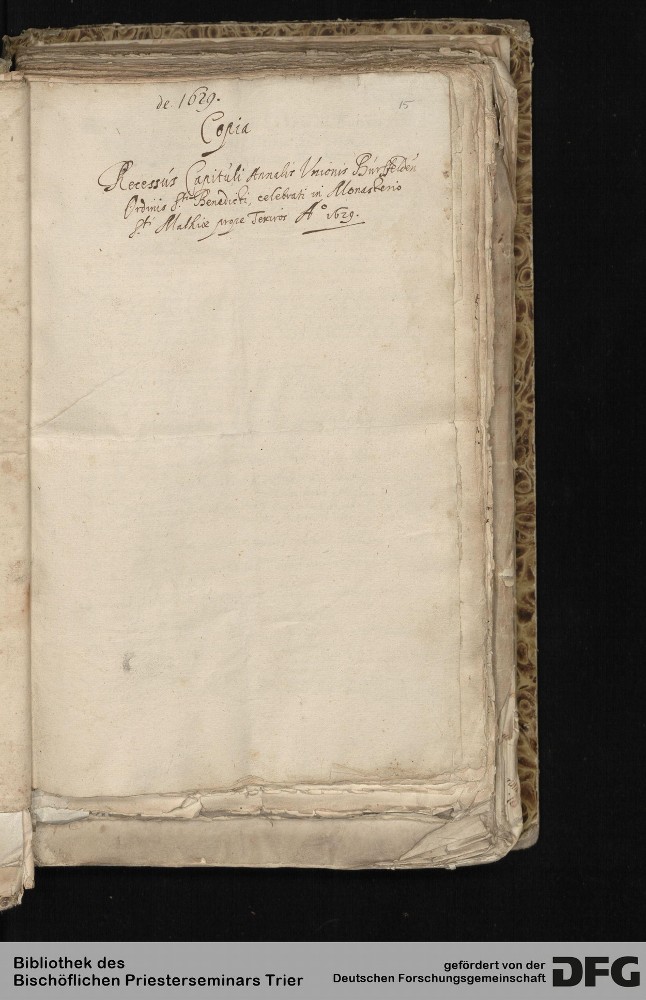 de 1629.
15
Copia
Recessus Capituli Annalis Unionis Bursfelden
Ordinis Sti Benedicti, celebrati in Monasterio
Sti Mathiæ prope Treviros Ao 1629.
Bibliothek des
Bischöflichen Priesterseminars Trier
gefördert von der
Deutschen Forschungsgemeinschaft
DFG